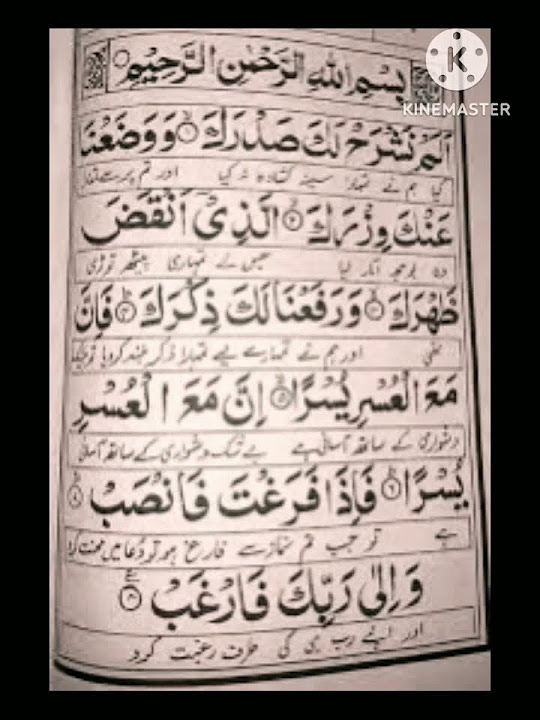 KINEMASTER
بِسْمِ اللهِ الرَّحْمٰنِ الرَّحِيْمِ
اَلَمْ نَشْرَحْ لَكَ صَدْرَكَ ۙ۝۱ وَوَضَعْنَا
کیا ہم نے تمہارا سینہ کشادہ نہ کیا اور تم پر سے تمہارا
عَنْكَ وِزْرَكَ ۙ۝۲ الَّذِيْٓ اَنْقَضَ
وہ بوجھ اتار لیا جس نے تمہاری پیٹھ توڑی
ظَهْرَكَ ۙ۝۳ وَرَفَعْنَا لَكَ ذِكْرَكَ ؕ۝۴ فَاِنَّ
تھی اور ہم نے تمہارے لیے تمہارا ذکر بلند کردیا تو بیشک
مَعَ الْعُسْرِ يُسْرًا ۙ۝۵ اِنَّ مَعَ الْعُسْرِ
دشواری کے ساتھ آسانی ہے بے شک دشواری کے ساتھ آسانی
يُسْرًا ؕ۝۶ فَاِذَا فَرَغْتَ فَانْصَبْ ۙ۝۷
ہے تو جب تم نماز سے فارغ ہو تو دُعا میں محنت کرو
وَاِلٰى رَبِّكَ فَارْغَبْ ۝۸
اور اپنے رب ہی کی طرف رغبت کرو